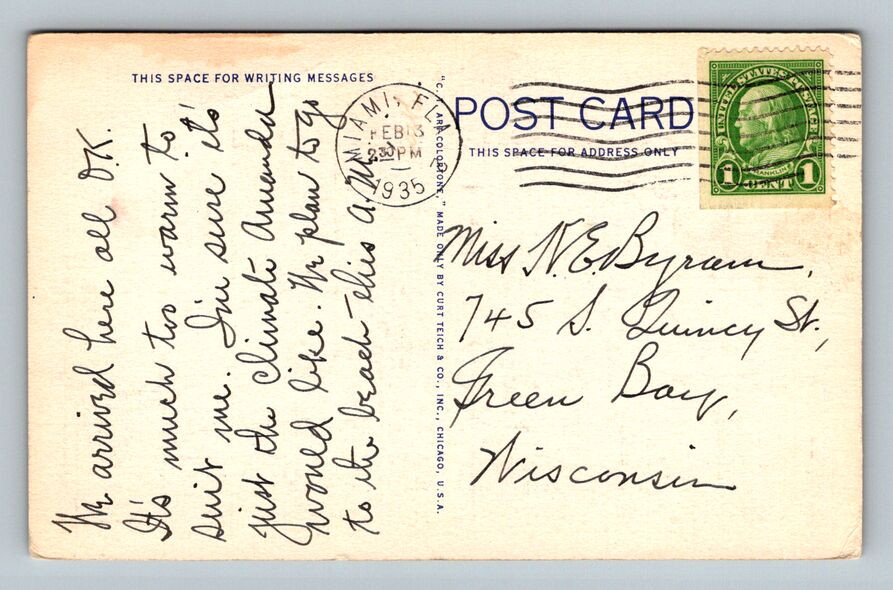 THIS SPACE FOR WRITING MESSAGES
We arrived here all O.K.
It's much too warm to
suit me. I'm sure it's
just the climate Amanda
would like. We plan to go
to the beach this a.m.
"C. T. ART-COLORTONE," MADE ONLY BY CURT TEICH & CO., INC., CHICAGO, U.S.A.
MIAMI, FLA.
FEB 13
230 PM
1935
POST CARD
THIS SPACE FOR ADDRESS ONLY
UNITED STATES POSTAGE
FRANKLIN
1 CENT 1
Miss N. E. Byram,
745 S. Quincy St.,
Green Bay,
Wisconsin